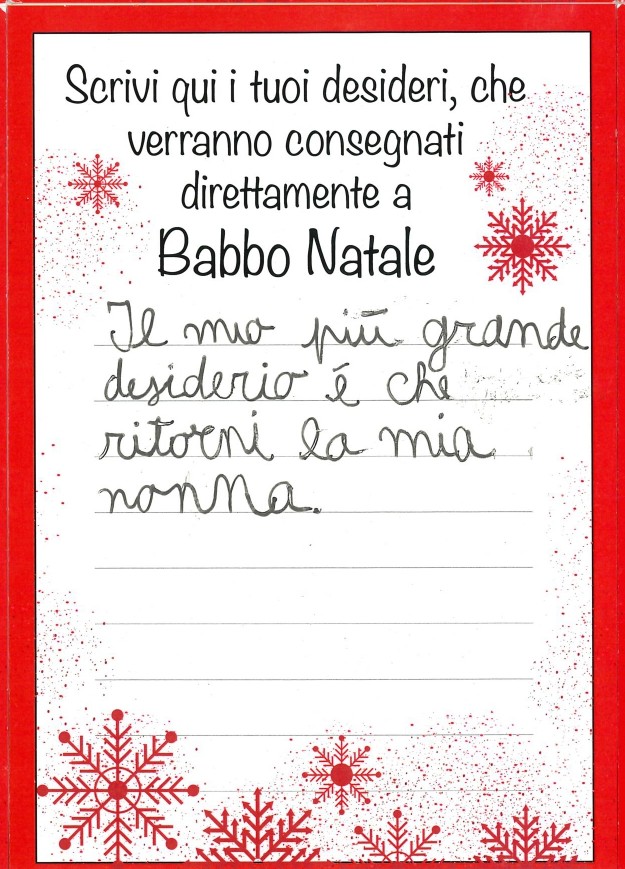 Scrivi qui i tuoi desideri, che
verranno consegnati
direttamente a
Babbo Natale
Il mio più grande
desiderio é che
ritorni la mia
nonna.